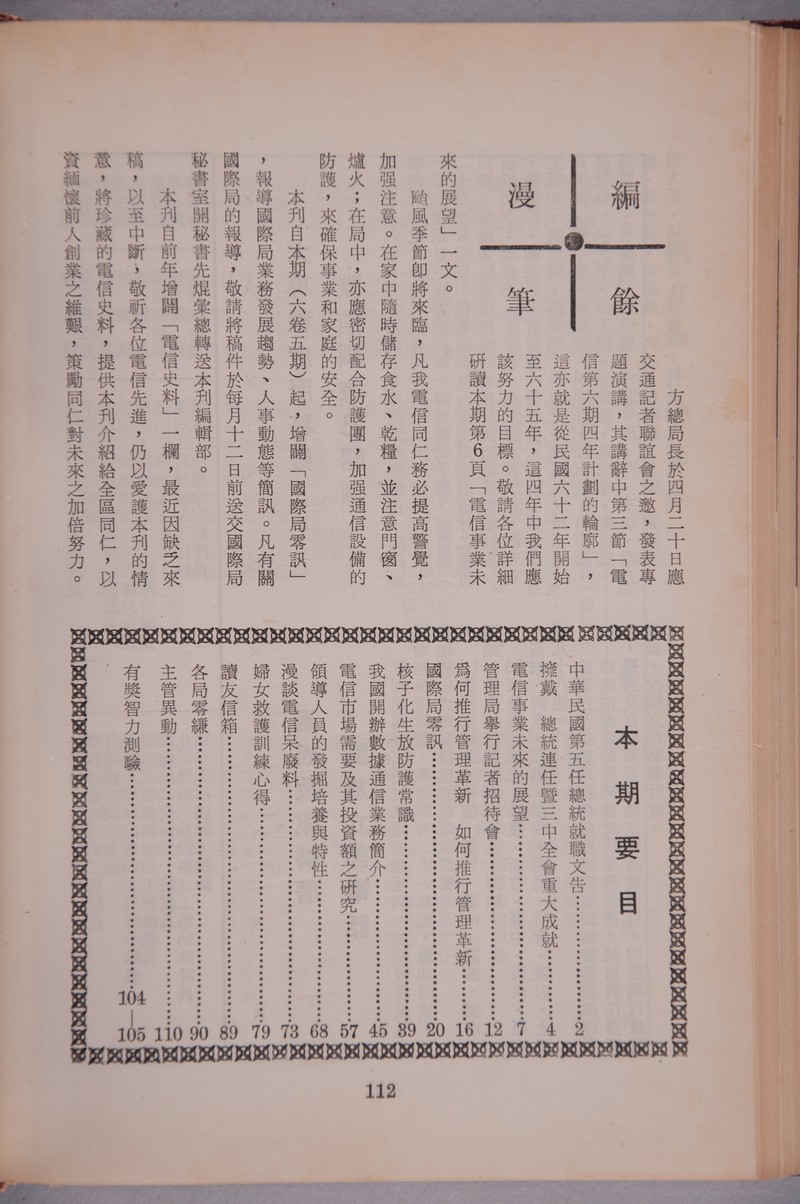 編餘
漫筆
方總局長於四月二十日應
交通記者聯誼會之邀，發表專
題演講，其講辭中第三節「電
信第六期四年計劃的輪廓」，
這亦就是從民國六十二年開始
至六十五年，這四年中我們應
該努力的目標。敬請各位詳細
研讀本期第6頁「電信事業未
來的展望」一文。
颱風季節卽將來臨，凡我電信同仁務必提高警覺，
加强注意。在家中隨時儲存食水、乾糧，並注意門窗、
爐火；在局中，亦應密切配合防護團，加强通信設備的
防護，來確保事業和家庭的安全。
本刊自本期（六卷五期）起，增闢「國際局零訊」
，報導國際局業務發展趨勢、人事動態等簡訊。凡有關
國際局的報導，敬請將稿件於每月十二日前送交國際局
秘書室開秘書先焜彙總轉送本刊編輯部。
本刊自前年增闢「電信史料」一欄，最近因缺乏來
稿，以至中斷，敬祈各位電信先進，仍以愛護本刊的情
意，將珍藏的電信史料，提供本刊介紹給全區同仁，以
資緬懷前人創業之維艱，策勵同仁對未來之加倍努力。
本期要目
中華民國第五任總統就職文告…………2
擁戴　總統連任暨三中全會重大成就…………4
電信事業未來的展望…………7
管理局舉行記者招待會…………12
爲何推行管理革新　如何推行管理革新…………16
國際局零訊…………20
核子化生放防護常識…………39
我國開辦數據通信業務簡介…………45
電信市場需要及其投資額之研究…………57
領導人員的發掘培養與特性…………68
漫談電信呆廢料…………73
婦女救護訓練心得…………79
讀友信箱…………89
各局零縑…………90
主管異動…………110
有獎智力測驗…………104—105
112